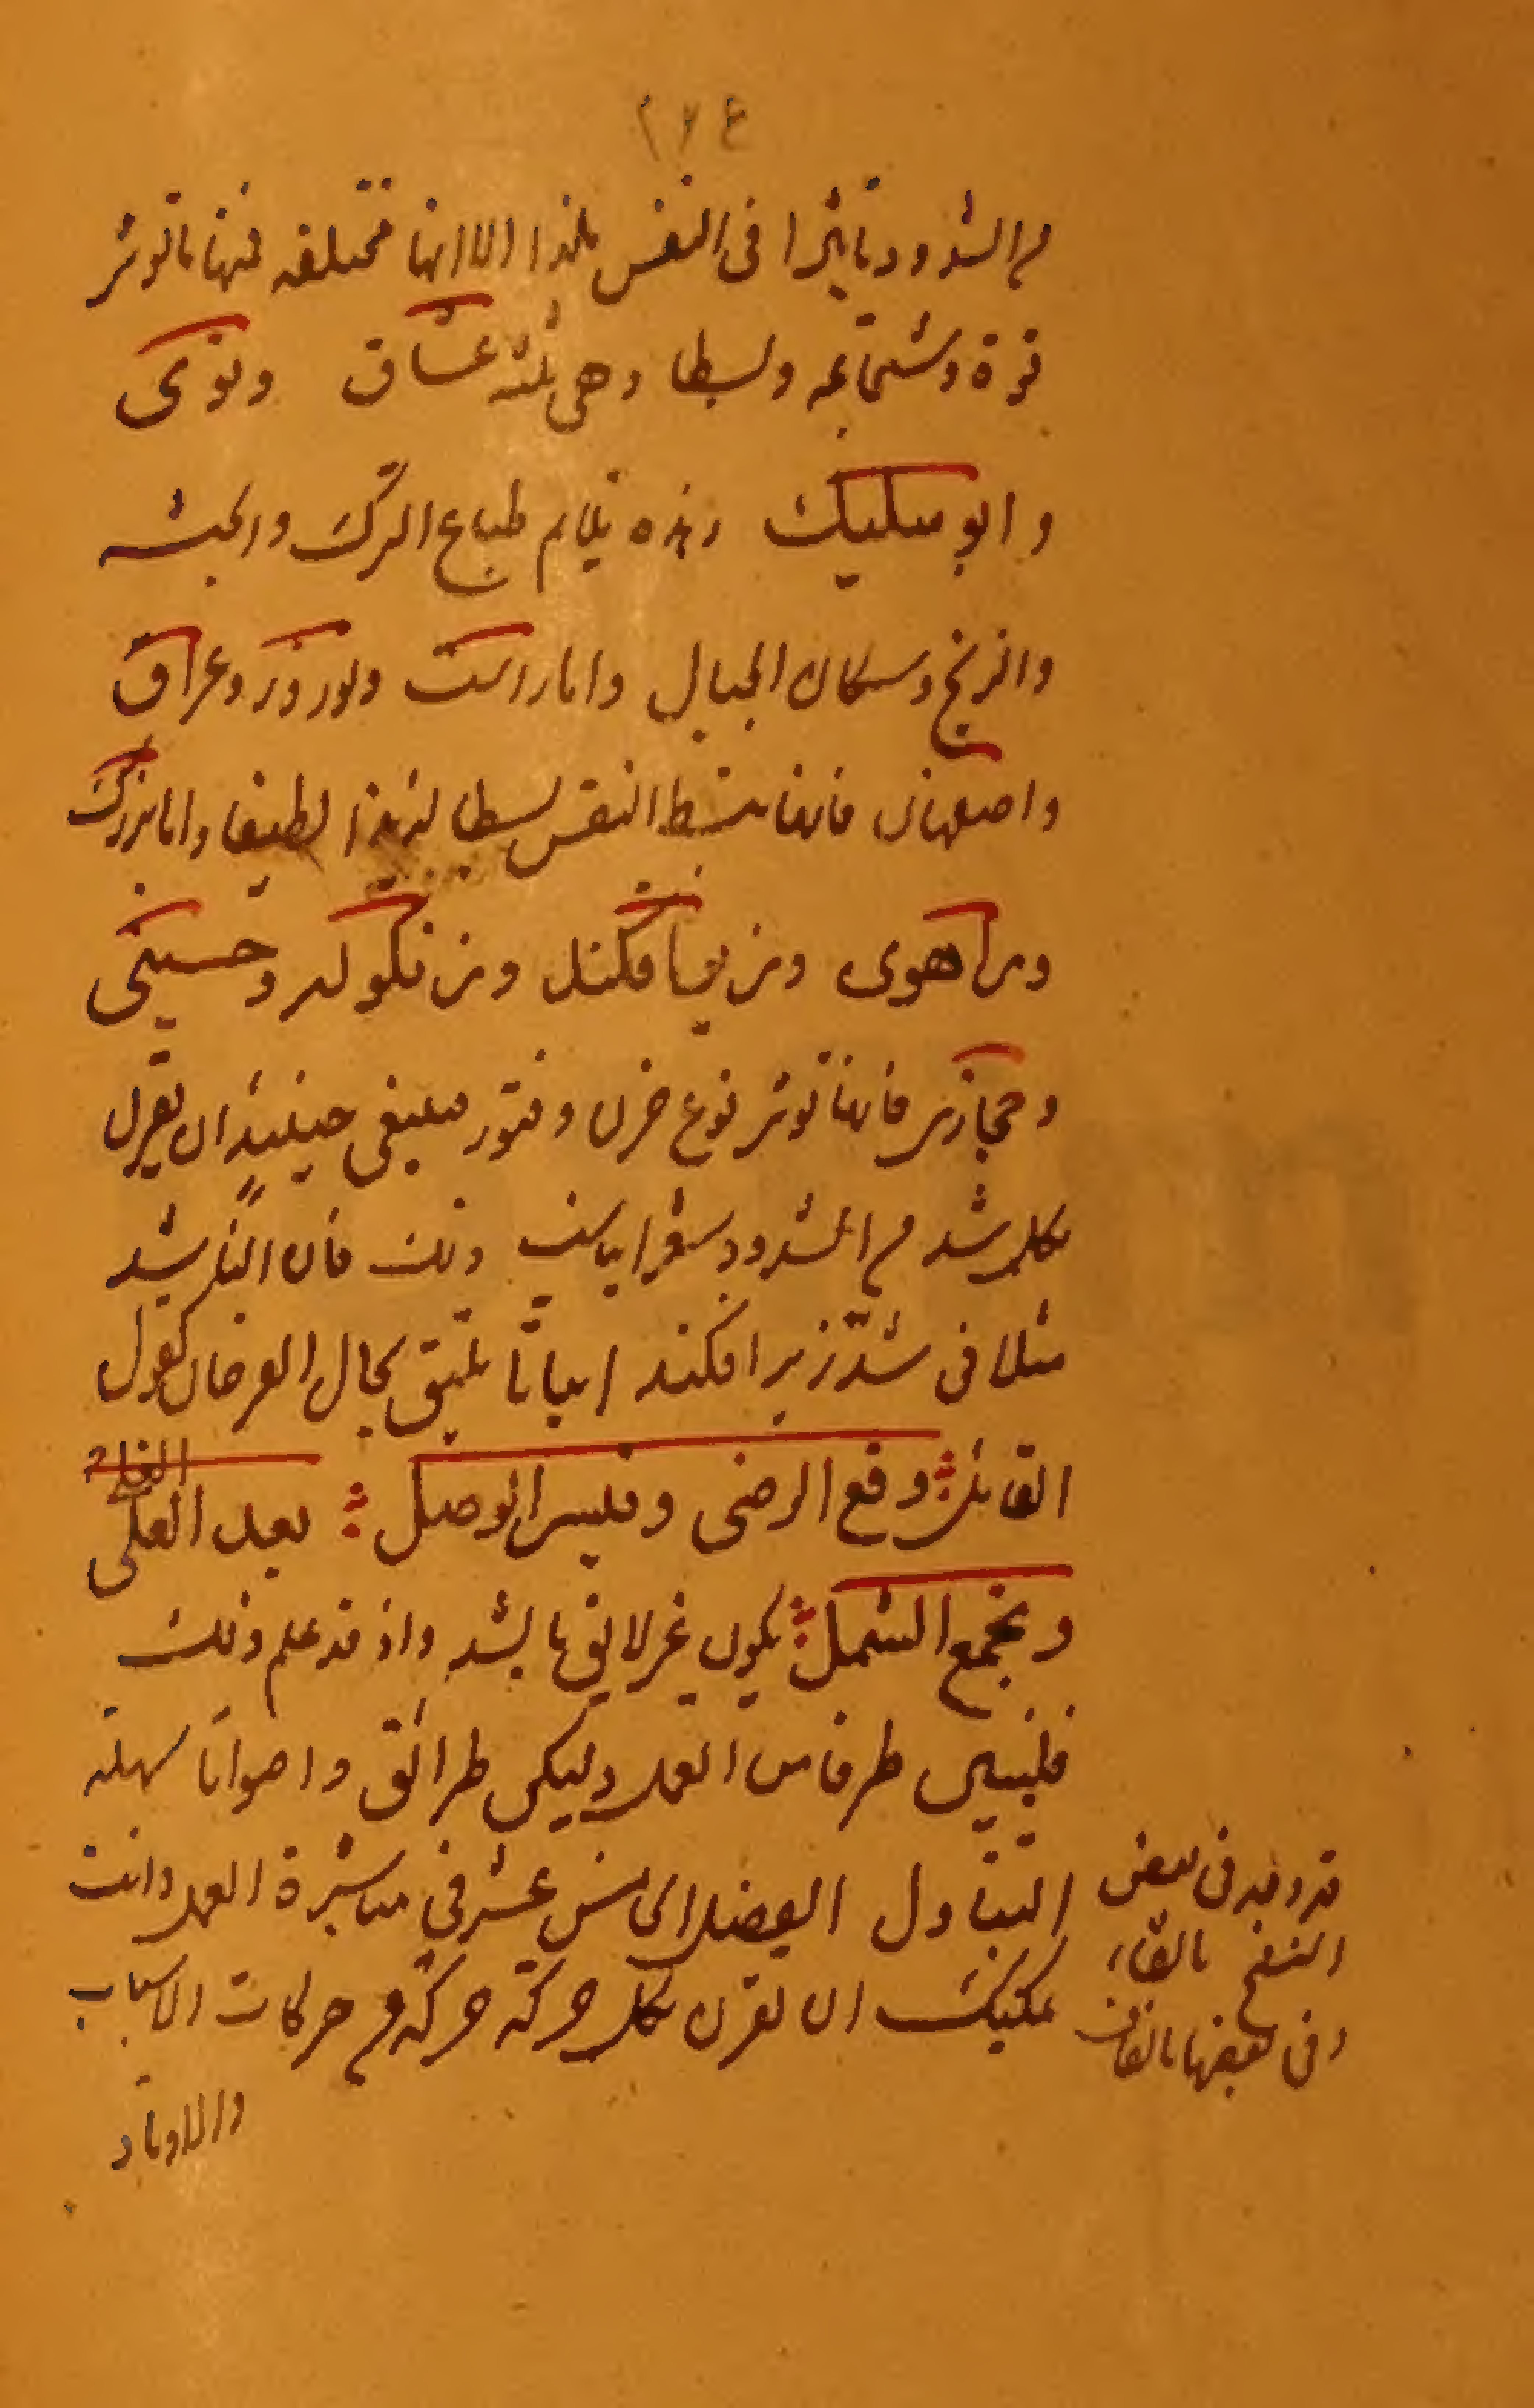 ١٢٤
من الشدود تاثيرا فى النفس ملذا الا انها مختلفه فمنها ما تؤثر
قوة وشجاعه وبسطا وهى ثلثه عشاق ونوى
وابو سليك وهذه تلايم طباع الترك والحبشه
والزنج وسكان الجبال واما راست ونوروز وعراق
واصفهان فانها تبسط النفس بسطا لذيذا لطيفا واما بزرك
وراهوى وزيرافكند وزنكوله وحسينى
وحجازى فانها تؤثر نوع حزن وفتور فينبغى حينئذ ان يقرن
بكل شد من الشدود شعرا يناسب ذلك فان الناس شد
مثلا فى شد زيرافكند ابياتا تليق بحال الفرحان كقول
القائل وقع الرضى وتيسر الوصل بعد القلى
وتجمع الشمل يكون غير لائق بالشد واذ قد علم ذلك
فلنبين طرفا من العمل وليكن طرائق واصواتا سهلة
التناول الفصل الخامس عشر فى مباشرة العمل وانت
يمكنك ان تقرن بكل حركة حركة من حركات الاسباب
والاوتاد
قد وجد فى بعض
النسخ بالفاء
وفى بعضها بالقاف